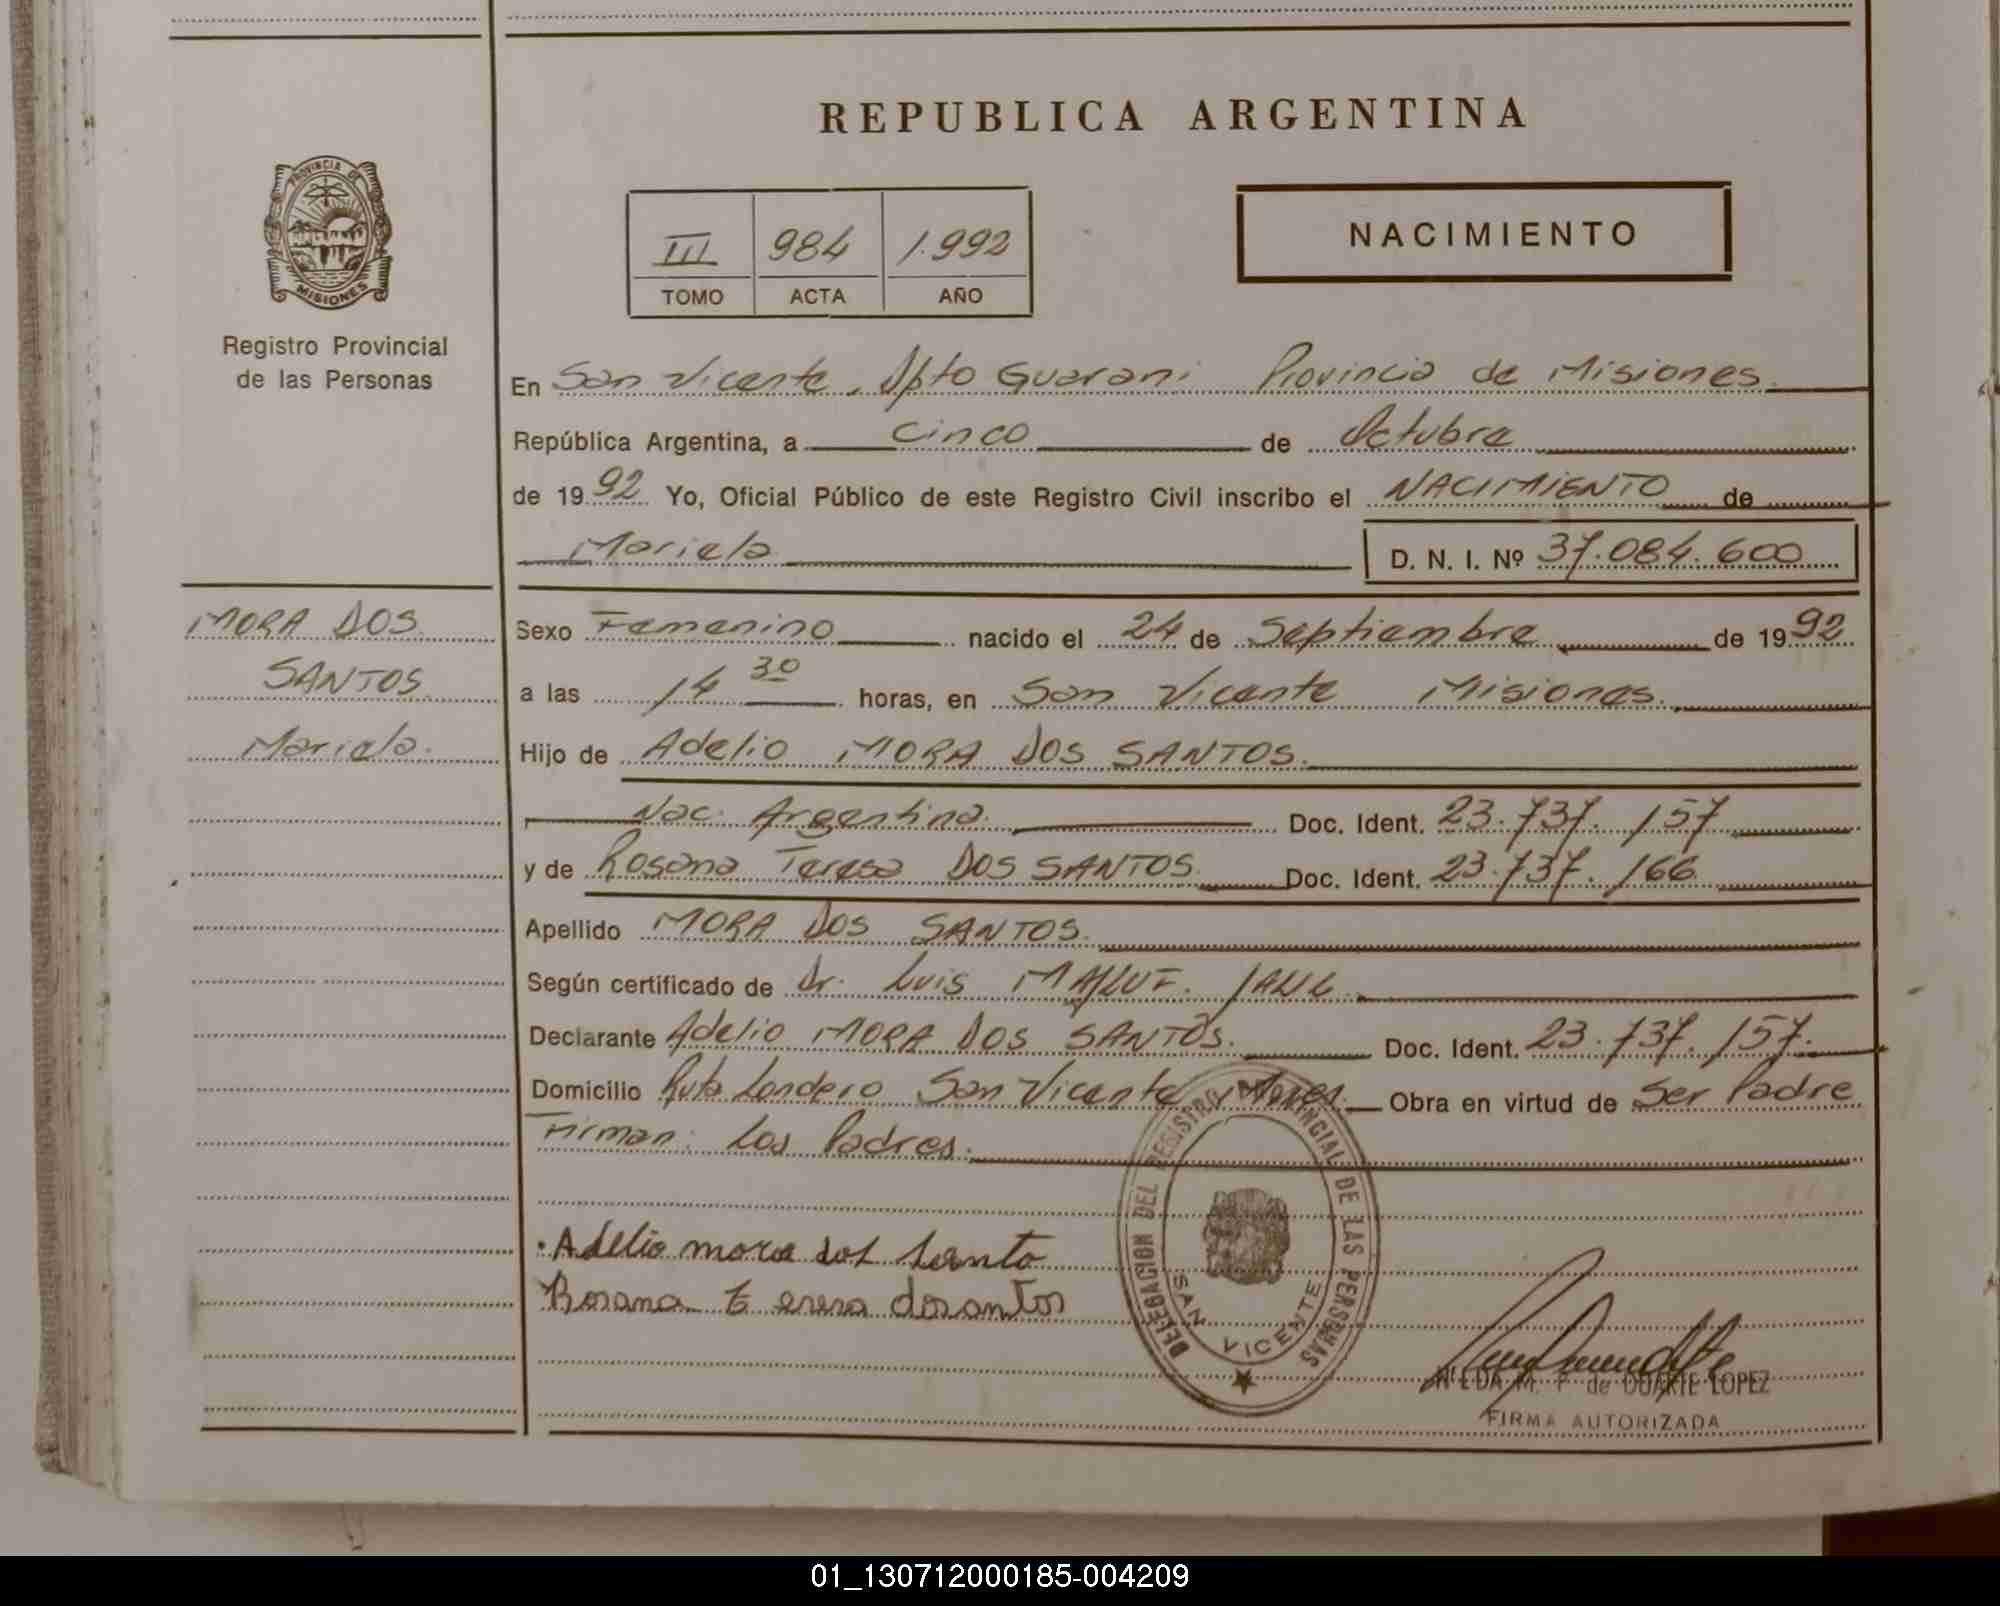 REPUBLICA ARGENTINA
PROVINCIA DE
MISIONES
Registro Provincial
de las Personas
III 984 1.992
TOMO ACTA AÑO
NACIMIENTO
En San Vicente, Dpto Guarani Provincia de Misiones.
República Argentina, a cinco de Octubre
de 1992 Yo, Oficial Público de este Registro Civil inscribo el NACIMIENTO de
Mariela D. N. I. Nº 37.084.600
MORA DOS
SANTOS
Mariela.
Sexo Femenino nacido el 24 de Septiembre de 1992
a las 14 30 horas, en San Vicente Misiones.
Hijo de Adelio MORA DOS SANTOS.
Nac. Argentina. Doc. Ident. 23.737.157
y de Rosana Teresa DOS SANTOS Doc. Ident. 23.737.166
Apellido MORA DOS SANTOS.
Según certificado de Dr. Luis
Declarante Adelio MORA DOS SANTOS. Doc. Ident. 23.737.157.
Domicilio Ruta Londero San Vicente Mnes. Obra en virtud de Ser Padre
Firman: Los Padres.
Adelio mora dos santo
Rosana teresa dosantos
DELEGACION DEL REGISTRO PROVINCIAL DE LAS PERSONAS
SAN VICENTE
M. F. de DUARTE LOPEZ
FIRMA AUTORIZADA
01_130712000185-004209